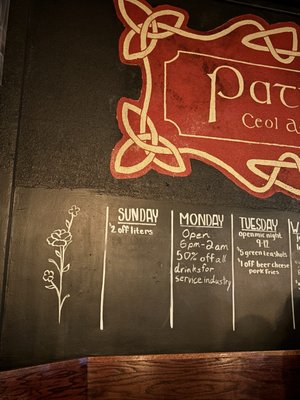 Pat
Ceol a
SUNDAY
$2 off liters
MONDAY
Open
6pm-2am
50% off all
drinks for
service industry
TUESDAY
open mic night
9-12
$5 green tea shots
$1 off beer cheese
pork fries
W